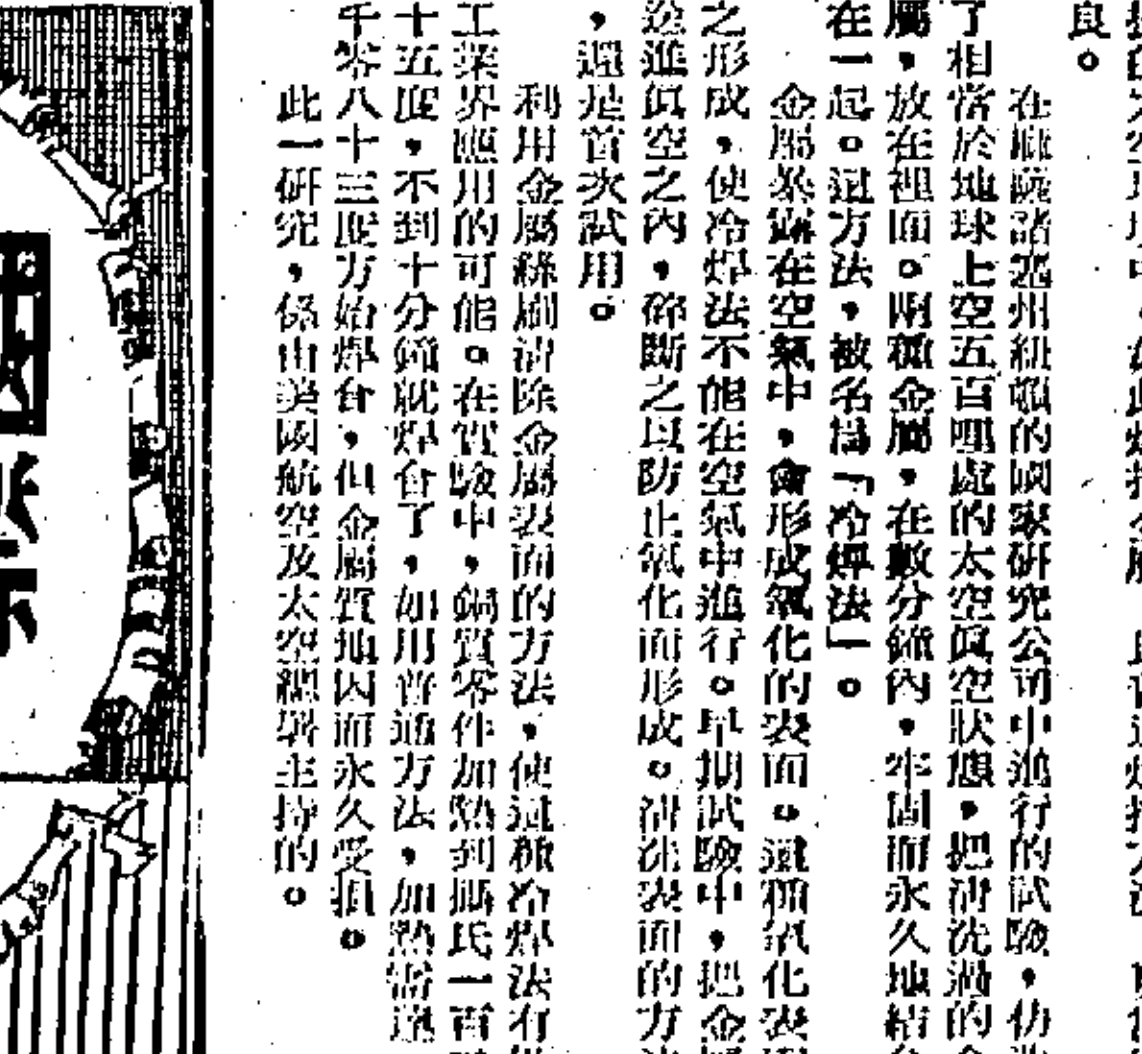 良。
在麻薩諸塞州紐頓的國家研究公司中進行的試驗，仿
了相當於地球上空五百哩處的太空眞空狀態，把清洗過的
屬，放在裡面。兩種金屬，在數分鐘內，牢固而永久地結
在一起。這方法，被名爲「冷焊法」。
金屬暴露在空氣中，會形成氧化的表面。這種氧化表
之形成，使冷焊法不能在空氣中進行。早期試驗中，把金
送進眞空之內，碎斷之以防止氧化而形成。清洗表面的方
，還是首次試用。
利用金屬絲刷清除金屬表面的方法，使這種冷焊法有
工業界應用的可能。在實驗中，銅質零件加熱到攝氏一百
十五度，不到十分鐘就焊合了，如用普通方法，加熱需達
千零八十三度方始焊合，但金屬質地因而永久受損。
此一研究，係由美國航空及太空總署主持的。